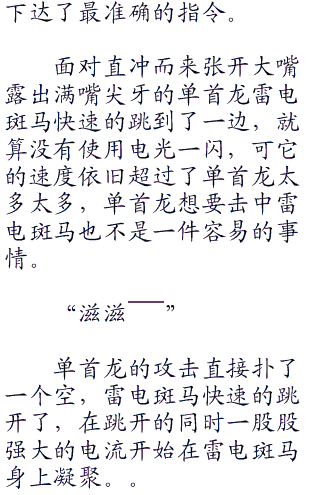 下达了最准确的指令。
面对直冲而来张开大嘴
露出满嘴尖牙的单首龙雷电
斑马快速的跳到了一边，就
算没有使用电光一闪，可它
的速度依旧超过了单首龙太
多太多，单首龙想要击中雷
电斑马也不是一件容易的事
情。
“滋滋——”
单首龙的攻击直接扑了
一个空，雷电斑马快速的跳
开了，在跳开的同时一股股
强大的电流开始在雷电斑马
身上凝聚。。